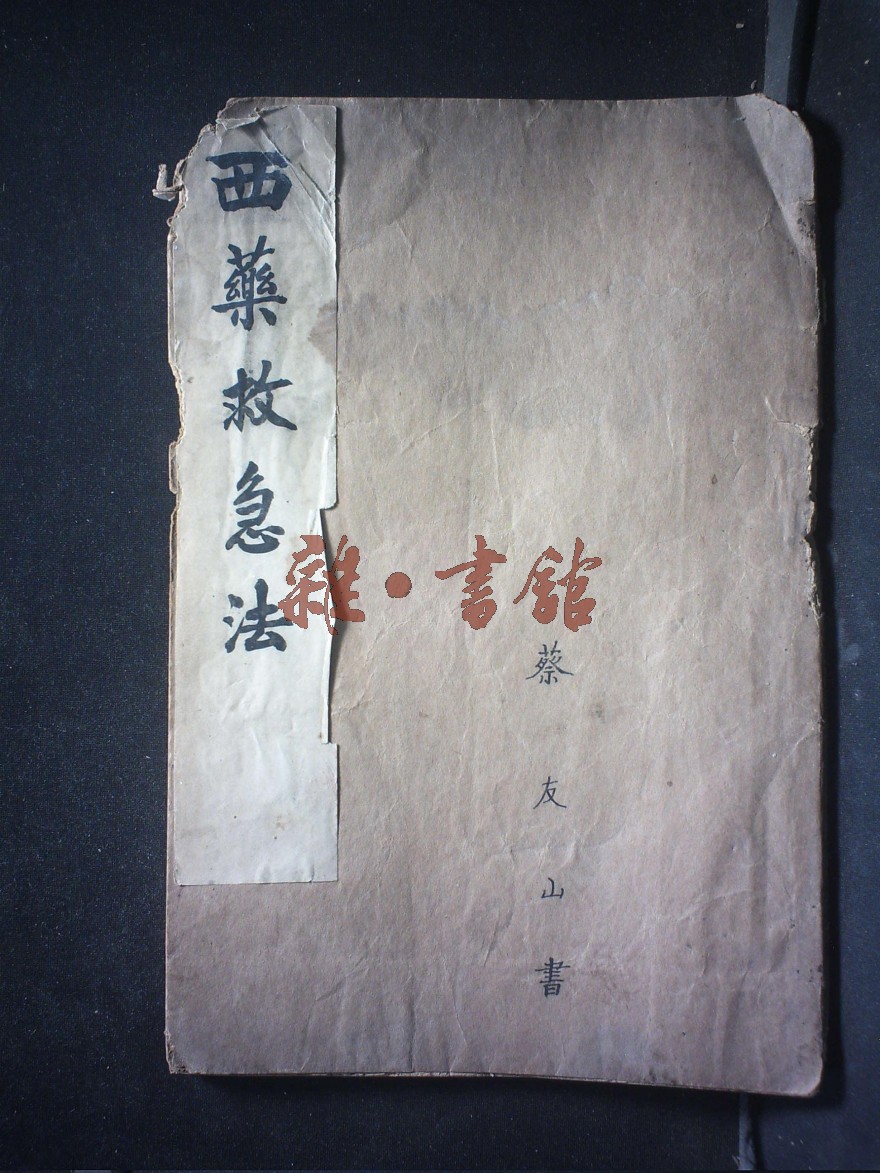 西藥救急法
雜·書館
蔡友山書